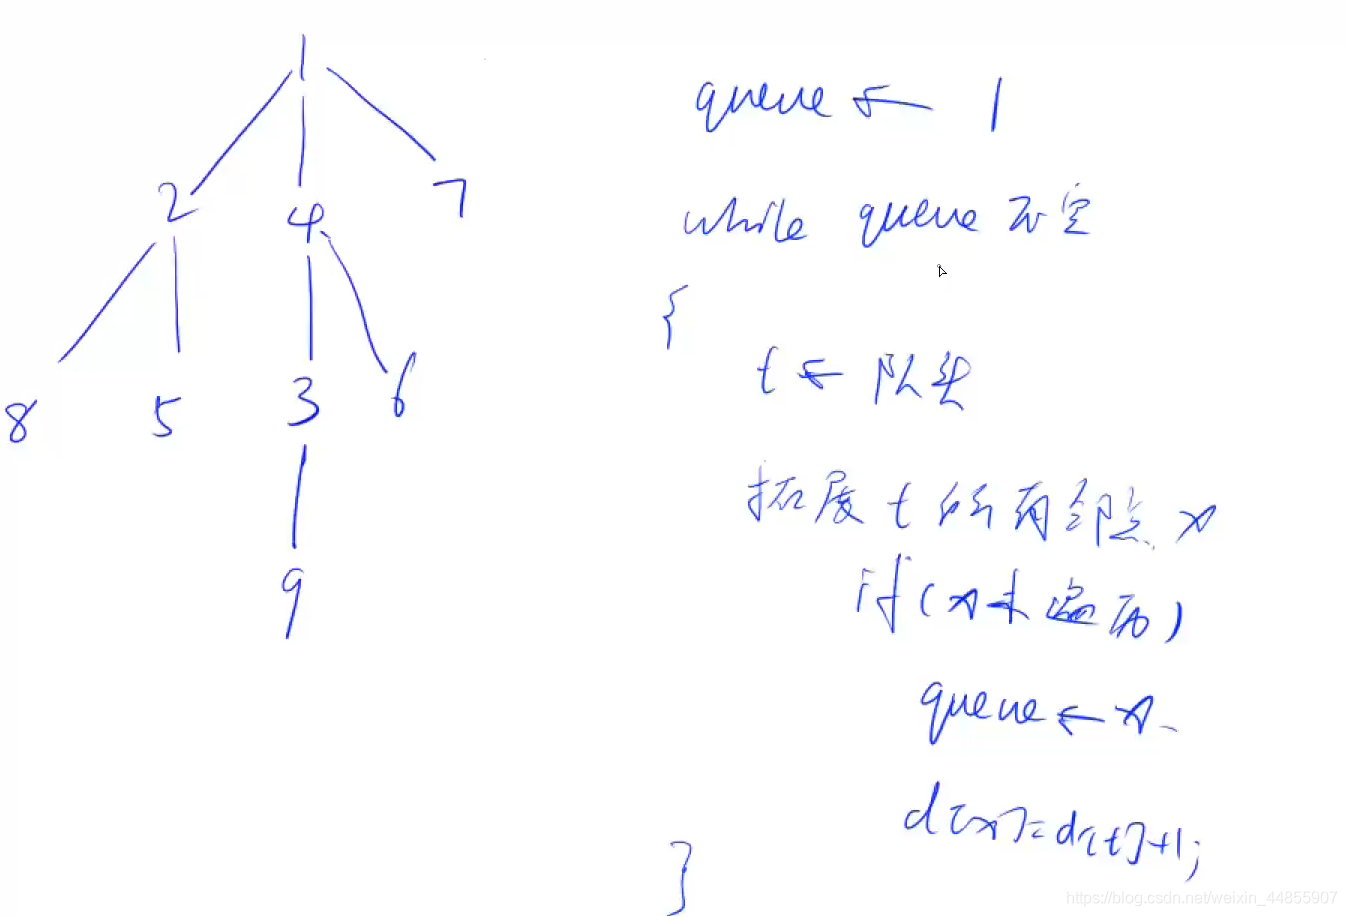 1
2 4 7
8 5 3 6
9
queue ← 1
while queue 不空
{
t ← 队头
拓展 t 的所有邻点 x
if (x未遍历)
queue ← x
d[x]=d[t]+1;
}
https://blog.csdn.net/weixin_44855907